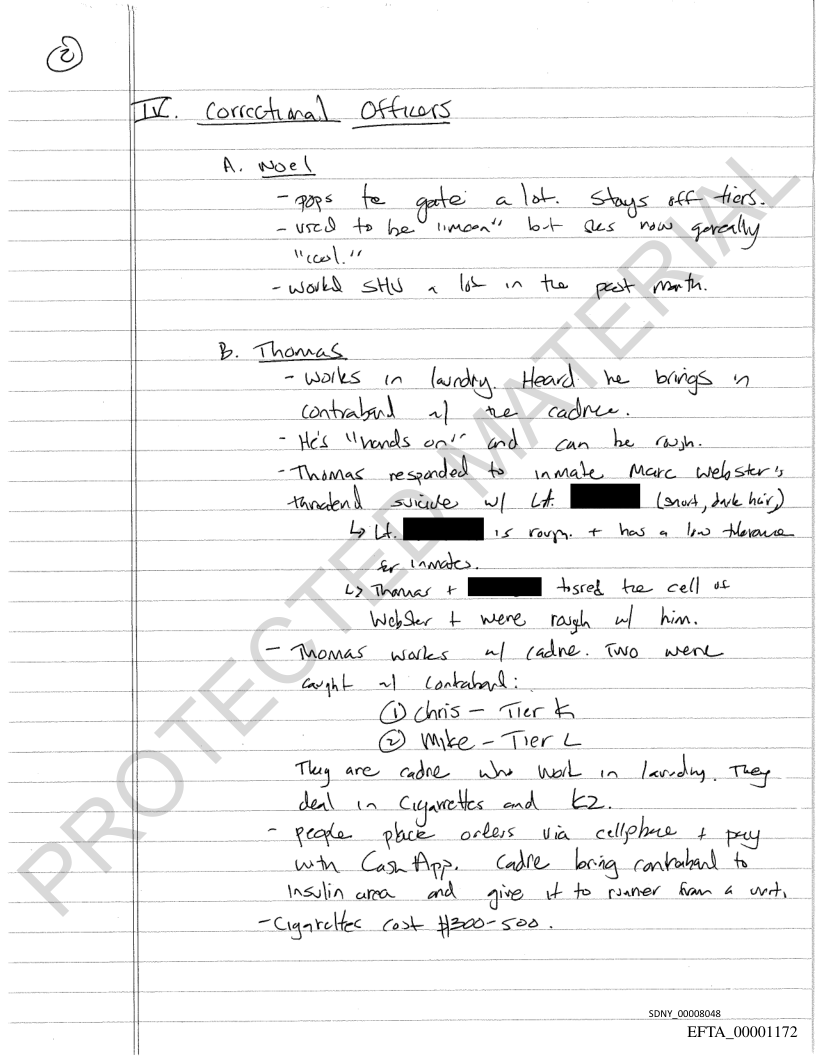 2
IV. Correctional Officers
A. Noel
- pops the gate a lot. Stays off tiers.
- used to be "mean" but she's now generally
"cool."
- worked SHU a lot in the past month.
B. Thomas
- works in laundry. Heard he brings in
contraband w/ the cadre.
- He's "hands on" and can be rough.
- Thomas responded to inmate Marc Webster's
threatend suicide w/ Lt. (short, dark hair)
↳ Lt. is rough. + has a low tolerance
for inmates.
↳ Thomas + tossed the cell of
Webster + were rough w/ him.
- Thomas works w/ cadre. Two were
caught w/ contraband:
① Chris - Tier K
② Mike - Tier L
They are cadre who work in laundry. They
deal in cigarettes and K2.
- people place orders via cellphone + pay
with Cash App. Cadre bring contraband to
insulin area and give it to runner from a unit.
- Cigarettes cost $300-500.
PROTECTED MATERIAL
SDNY_00008048
EFTA_00001172